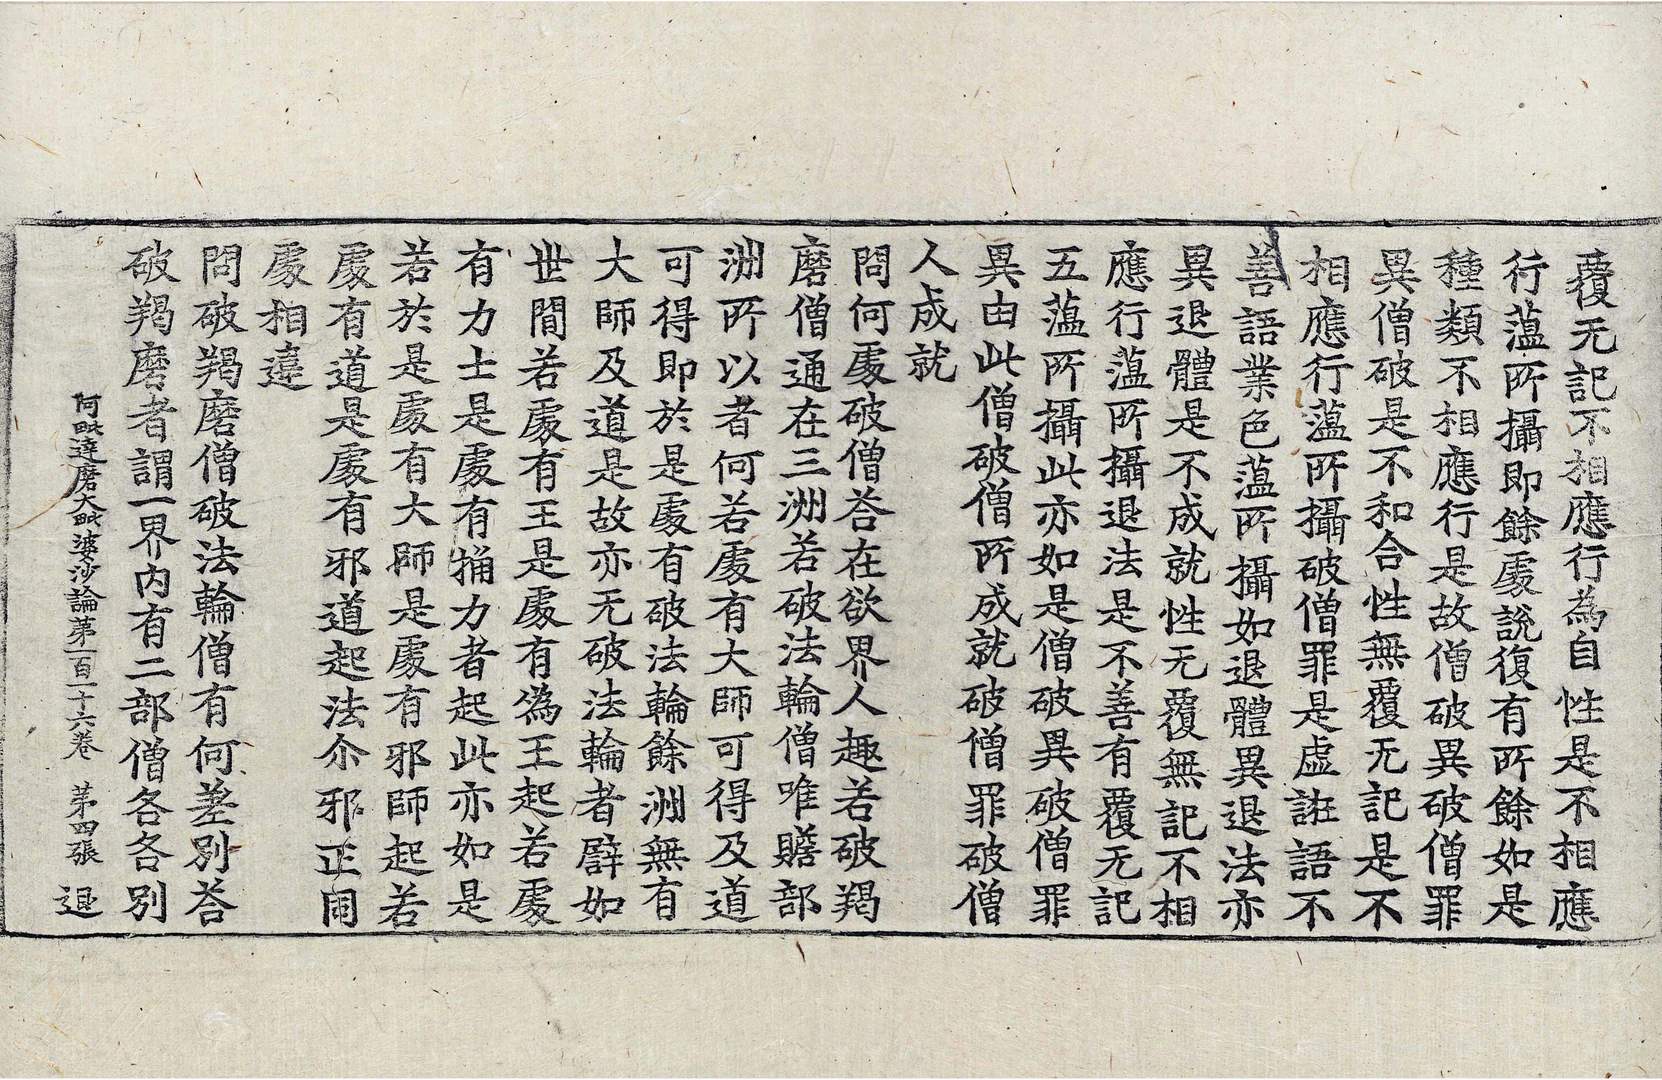 覆无記不相應行為自性是不相應
行薀所攝即餘處說復有所餘如是
種類不相應行是故僧破異破僧罪
異僧破是不和合性無覆无記是不
相應行薀所攝破僧罪是虛誑語不
善語業色薀所攝如退體異退法亦
異退體是不成就性无覆無記不相
應行薀所攝退法是不善有覆无記
五薀所攝此亦如是僧破異破僧罪
異由此僧破僧所成就破僧罪破僧
人成就
問何處破僧荅在欲界人趣若破羯
磨僧通在三洲若破法輪僧唯贍部
洲所以者何若處有大師可得及道
可得即於是處有破法輪餘洲無有
大師及道是故亦无破法輪者譬如
世間若處有王是處有爲王起若處
有力士是處有捔力者起此亦如是
若於是處有大師是處有邪師起若
處有道是處有邪道起法尒邪正同
處相違
問破羯磨僧破法輪僧有何差別荅
破羯磨者謂一界內有二部僧各各別
阿毗達磨大毗婆沙論第一百一十六卷　第四張　退